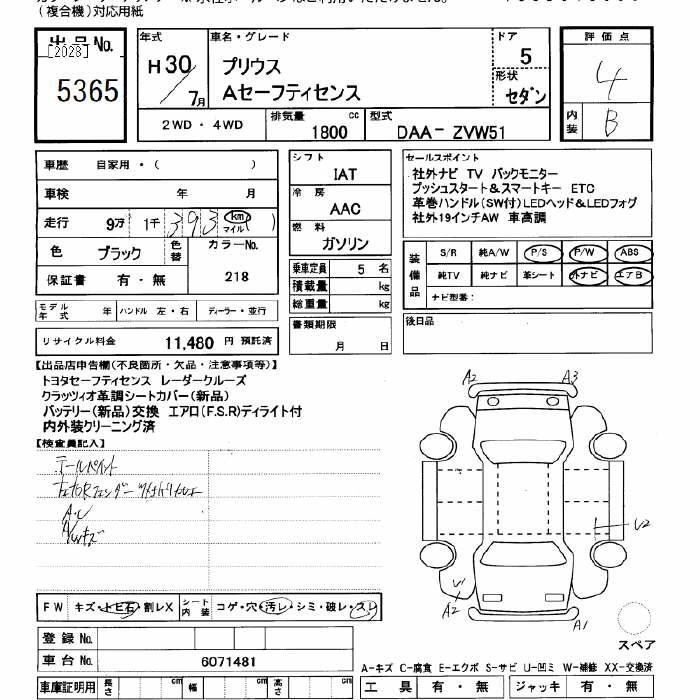 (複合機)対応用紙
出品No.
[2028]
5365
年式
H30/7月
車名・グレード
プリウス
Aセーフティセンス
ドア
5
形状
セダン
評価点
4
内装
B
2WD・4WD
排気量
1800 cc
型式
DAA- ZVW51
車歴 自家用・( )
車検 年 月
走行 9万 1千 393 km マイル
色 ブラック 色替 カラーNo.
保証書 有・無 218
モデル年式 年 ハンドル 左・右 ディーラー・並行
リサイクル料金 11,480 円 預託済
シフト
IAT
冷房
AAC
燃料
ガソリン
乗車定員 5 名
積載量 kg
総重量 kg
書類期限
月 日
セールスポイント
社外ナビ TV バックモニター
プッシュスタート&スマートキー ETC
革巻ハンドル(SW付)LEDヘッド&LEDフォグ
社外19インチAW 車高調
装備品
S/R 純A/W P/S P/W ABS
純TV 純ナビ 革シート 外ナビ エアB
ナビ型番:
後日品
【出品店申告欄(不良箇所・欠品・注意事項等)】
トヨタセーフティセンス レーダークルーズ
クラッツィオ革調シートカバー(新品)
バッテリー(新品)交換 エアロ(F.S.R)デイライト付
内外装クリーニング済
【検査員記入】
A2 A3
U2
A2 A1
スペア
FW キズ・トビ石・割レX シート内装 コゲ・穴・汚レ・シミ・破レ・スレ
登録No.
車台No. 6071481
車庫証明用 長さ cm 幅 cm 高さ cm
A-キズ C-腐食 E-エクボ S-サビ U-凹ミ W-補修 XX-交換済
工具 有・無 ジャッキ 有・無